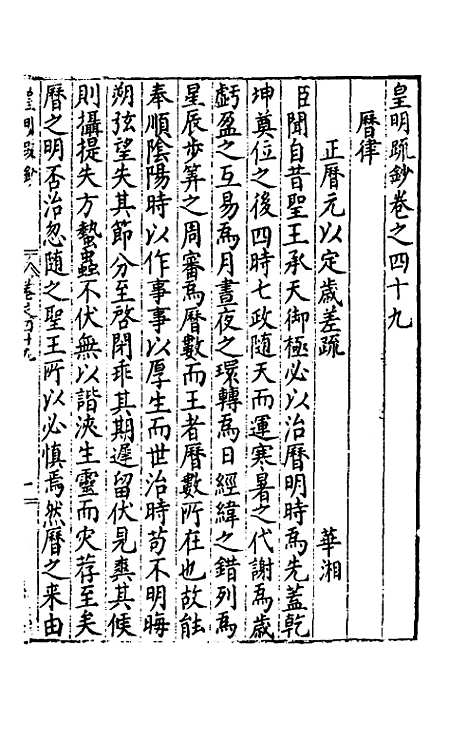 皇明疏鈔卷之四十九
曆律
正曆元以定歲差疏　華湘
臣聞自昔聖王承天御極必以治曆明時爲先蓋乾
坤奠位之後四時七政隨天而運寒暑之代謝爲歲
虧盈之互易爲月晝夜之環轉爲日經緯之錯列爲
星辰步筭之周審爲曆數而王者曆數所在也故能
奉順陰陽時以作事事以厚生而世治時苟不明晦
朔弦望失其節分至啓閉乖其期遲留伏見爽其候
則攝提失方蟄蟲不伏無以諧浹生靈而灾荐至矣
曆之明否治忽隨之聖王所以必慎焉然曆之来由
皇明疏鈔　卷之四十九　一